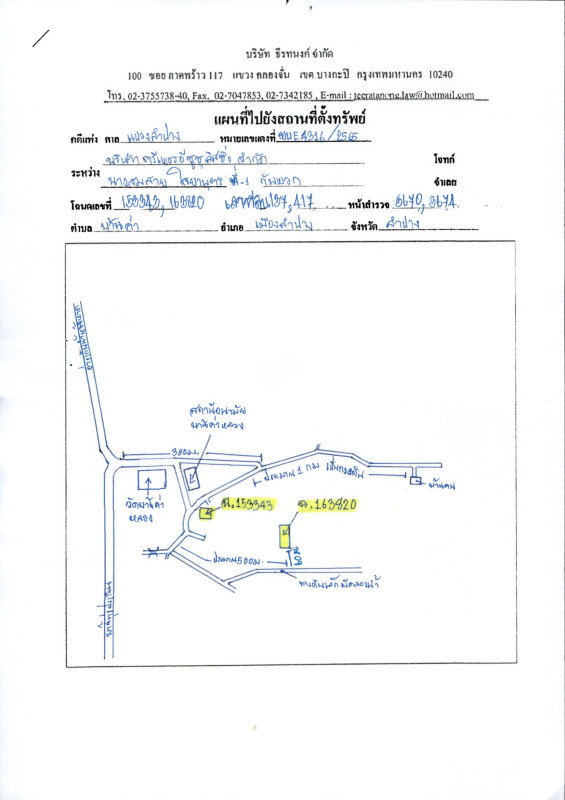 บริษัท ธีรทนงค์ จำกัด
100 ซอย ลาดพร้าว 117 แขวง คลองจั่น เขต บางกะปิ กรุงเทพมหานคร 10240
โทร. 02-3755738-40, Fax. 02-7047853, 02-7342185 , E-mail : teeratanong.law@hotmail.com
แผนที่ไปยังสถานที่ตั้งทรัพย์
คดีแพ่ง ศาล แขวงลำปาง หมายเลขแดงที่ ผบE4316/2565
บริษัท ตรีเพชรอีซูซุลิสซิ่ง จำกัด โจทก์
ระหว่าง
นางสมสาย ที่ 1 กับพวก จำเลย
โฉนดเลขที่ 153343, 163820 เลขที่ดิน 137, 417 หน้าสำรวจ 5670, 5674
ตำบล บ้านค่า อำเภอ เมืองลำปาง จังหวัด ลำปาง
สถานีอนามัย
บ้านค่าหลวง
300ม.
ประมาณ 1 กม.
วัดบ้านค่า
หลวง
ฉ.153343
ฉ.163820
บ้านคน
ประมาณ 500ม.
50 ม.